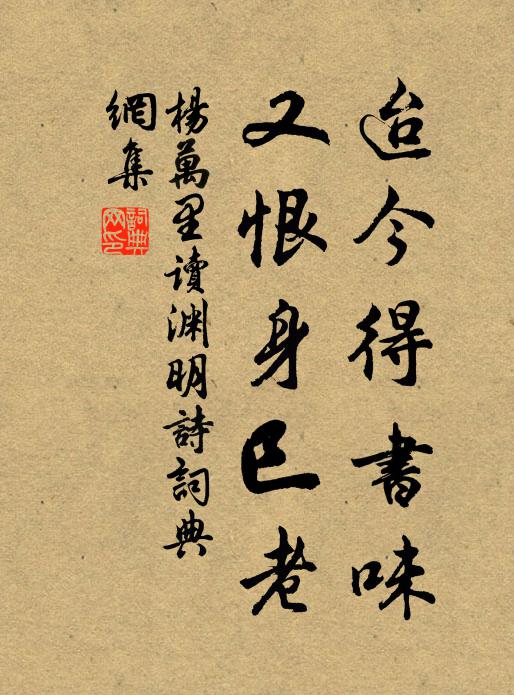 迨今得書味
又恨身已老
楊萬里讀淵明詩詞典
網集
詞典網印